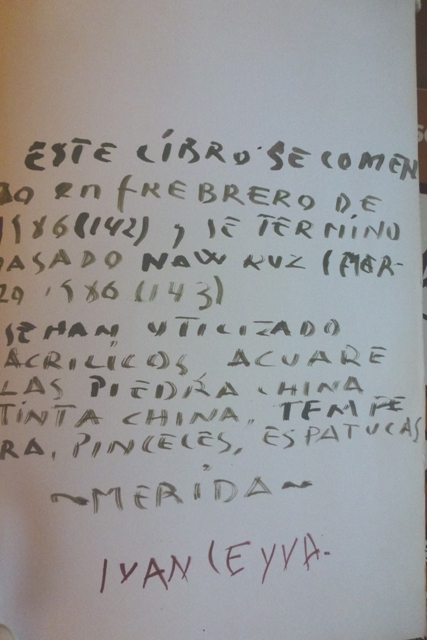 ESTE LIBRO SE COMEN
ZO En fREBRERO DE
1986(142) y SE TERMINO
PASADO NAW RUZ (MER-
ZO 1986 (143)
SE HAN UTILIZADO
ACRILICOS, ACUARE
LAS PIEDRA CHINA
TINTA CHINA, TEMPE
RA, PINCELES, ESPATULAS
~MERIDA~
IVAN LEYVA.